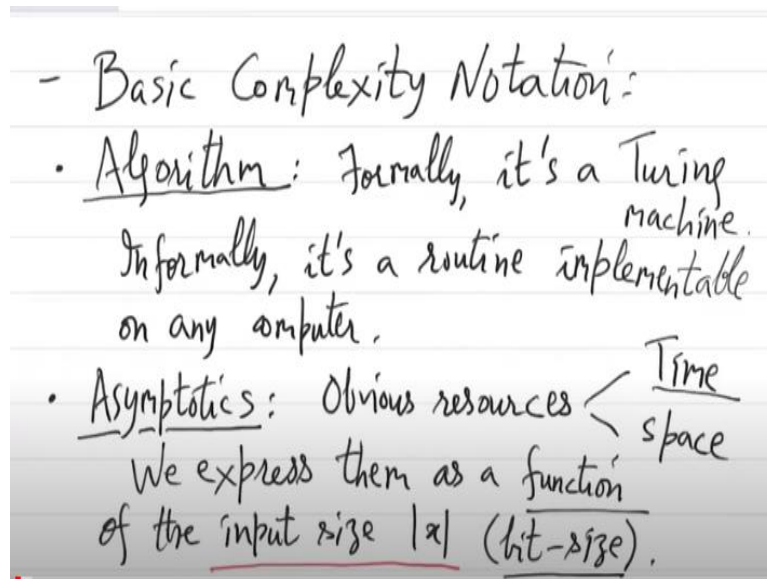 - Basic Complexity Notation:
· Algorithm: Formally, it's a Turing
machine.
Informally, it's a routine implementable
on any computer.
· Asymptotics: Obvious resources < Time
space
We express them as a function
of the input size |x| (bit-size).